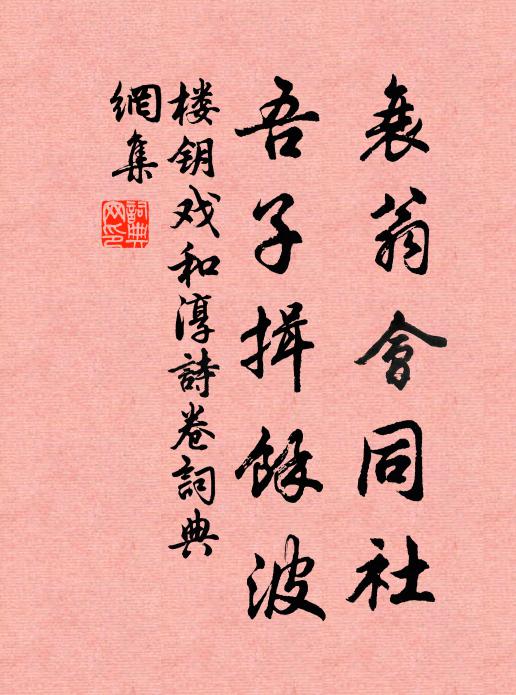 衰翁會同社
吾子揖餘波
楼钥戏和淳詩卷詞典
網集
詞典
网印